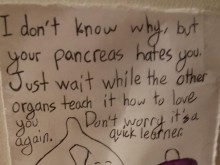 I don't know why, but
your pancreas hates you.
Just wait while the other
organs teach it how to love
you
again.
Don't worry it's a
quick learner.